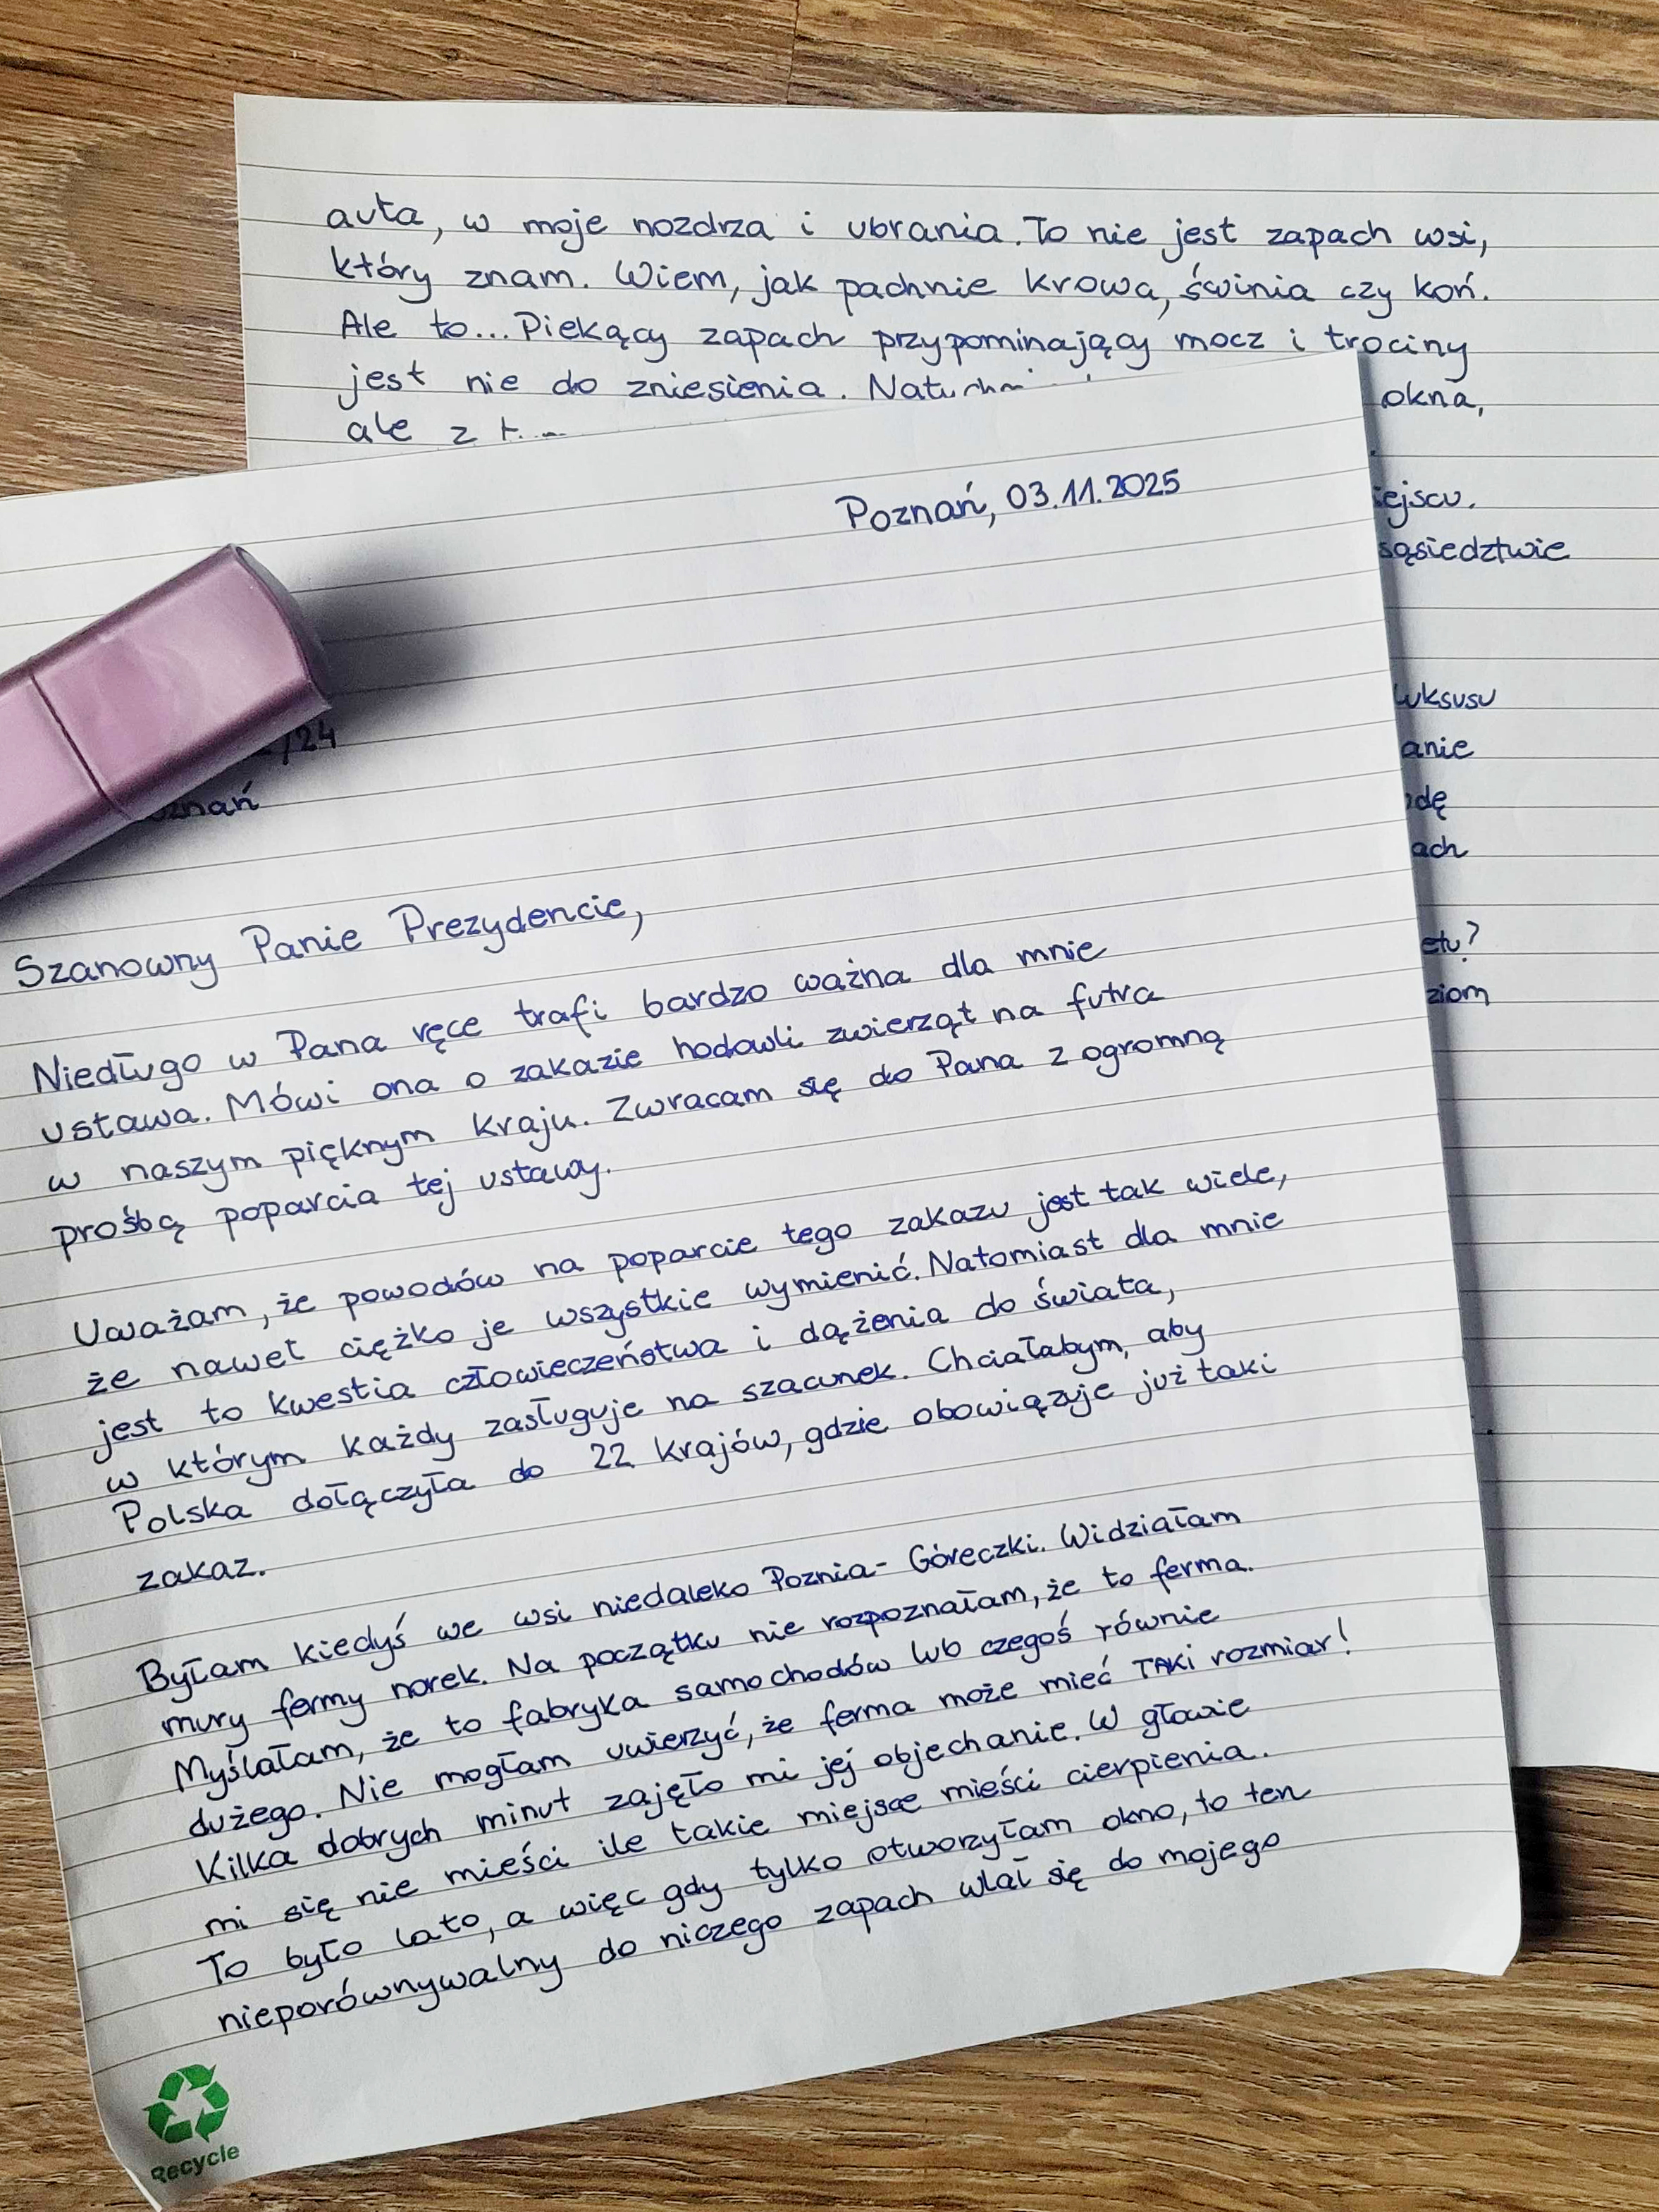 Poznań, 03.11.2025
/24
Szanowny Panie Prezydencie,
Niedługo w Pana ręce trafi bardzo ważna dla mnie
ustawa. Mówi ona o zakazie hodowli zwierząt na futra
w naszym pięknym kraju. Zwracam się do Pana z ogromną
prośbą poparcia tej ustawy.
Uważam, że powodów na poparcie tego zakazu jest tak wiele,
że nawet ciężko je wszystkie wymienić. Natomiast dla mnie
jest to kwestia człowieczeństwa i dążenia do świata,
w którym każdy zasługuje na szacunek. Chciałabym, aby
Polska dołączyła do 22 krajów, gdzie obowiązuje już taki
zakaz.
Byłam kiedyś we wsi niedaleko Poznia- Góreczki. Widziałam
mury fermy norek. Na początku nie rozpoznałam, że to ferma.
Myślałam, że to fabryka samochodów lub czegoś równie
dużego. Nie mogłam uwierzyć, że ferma może mieć TAKI rozmiar!
Kilka dobrych minut zajęło mi jej objechanie. W głowie
mi się nie mieści ile takie miejsce mieści cierpienia.
To było lato, a więc gdy tylko otworzyłam okno, to ten
nieporównywalny do niczego zapach wlał się do mojego
Recycle
auta, w moje nozdrza i ubrania. To nie jest zapach wsi,
który znam. Wiem, jak pachnie krowa, świnia czy koń.
Ale to... Piekący zapach przypominający mocz i trociny
jest nie do zniesienia. okna,
ale z
sąsiedztwie